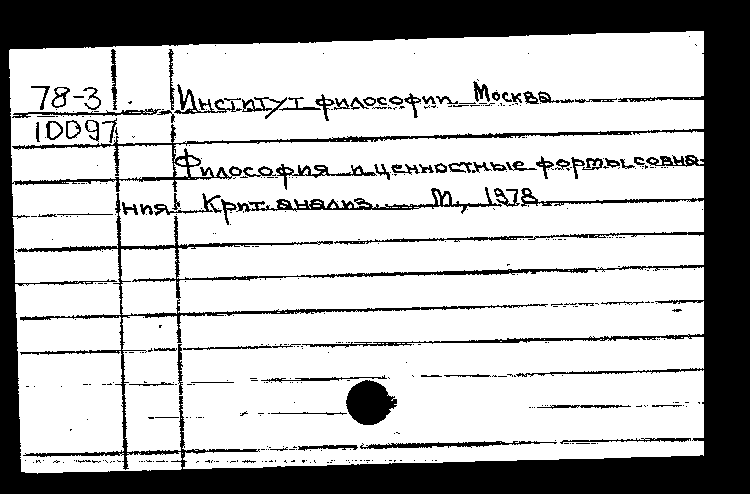 78-3 Институт философии. Москва
10097
Философия и ценностные формы созна-
ния. Крит. анализ. М., 1978